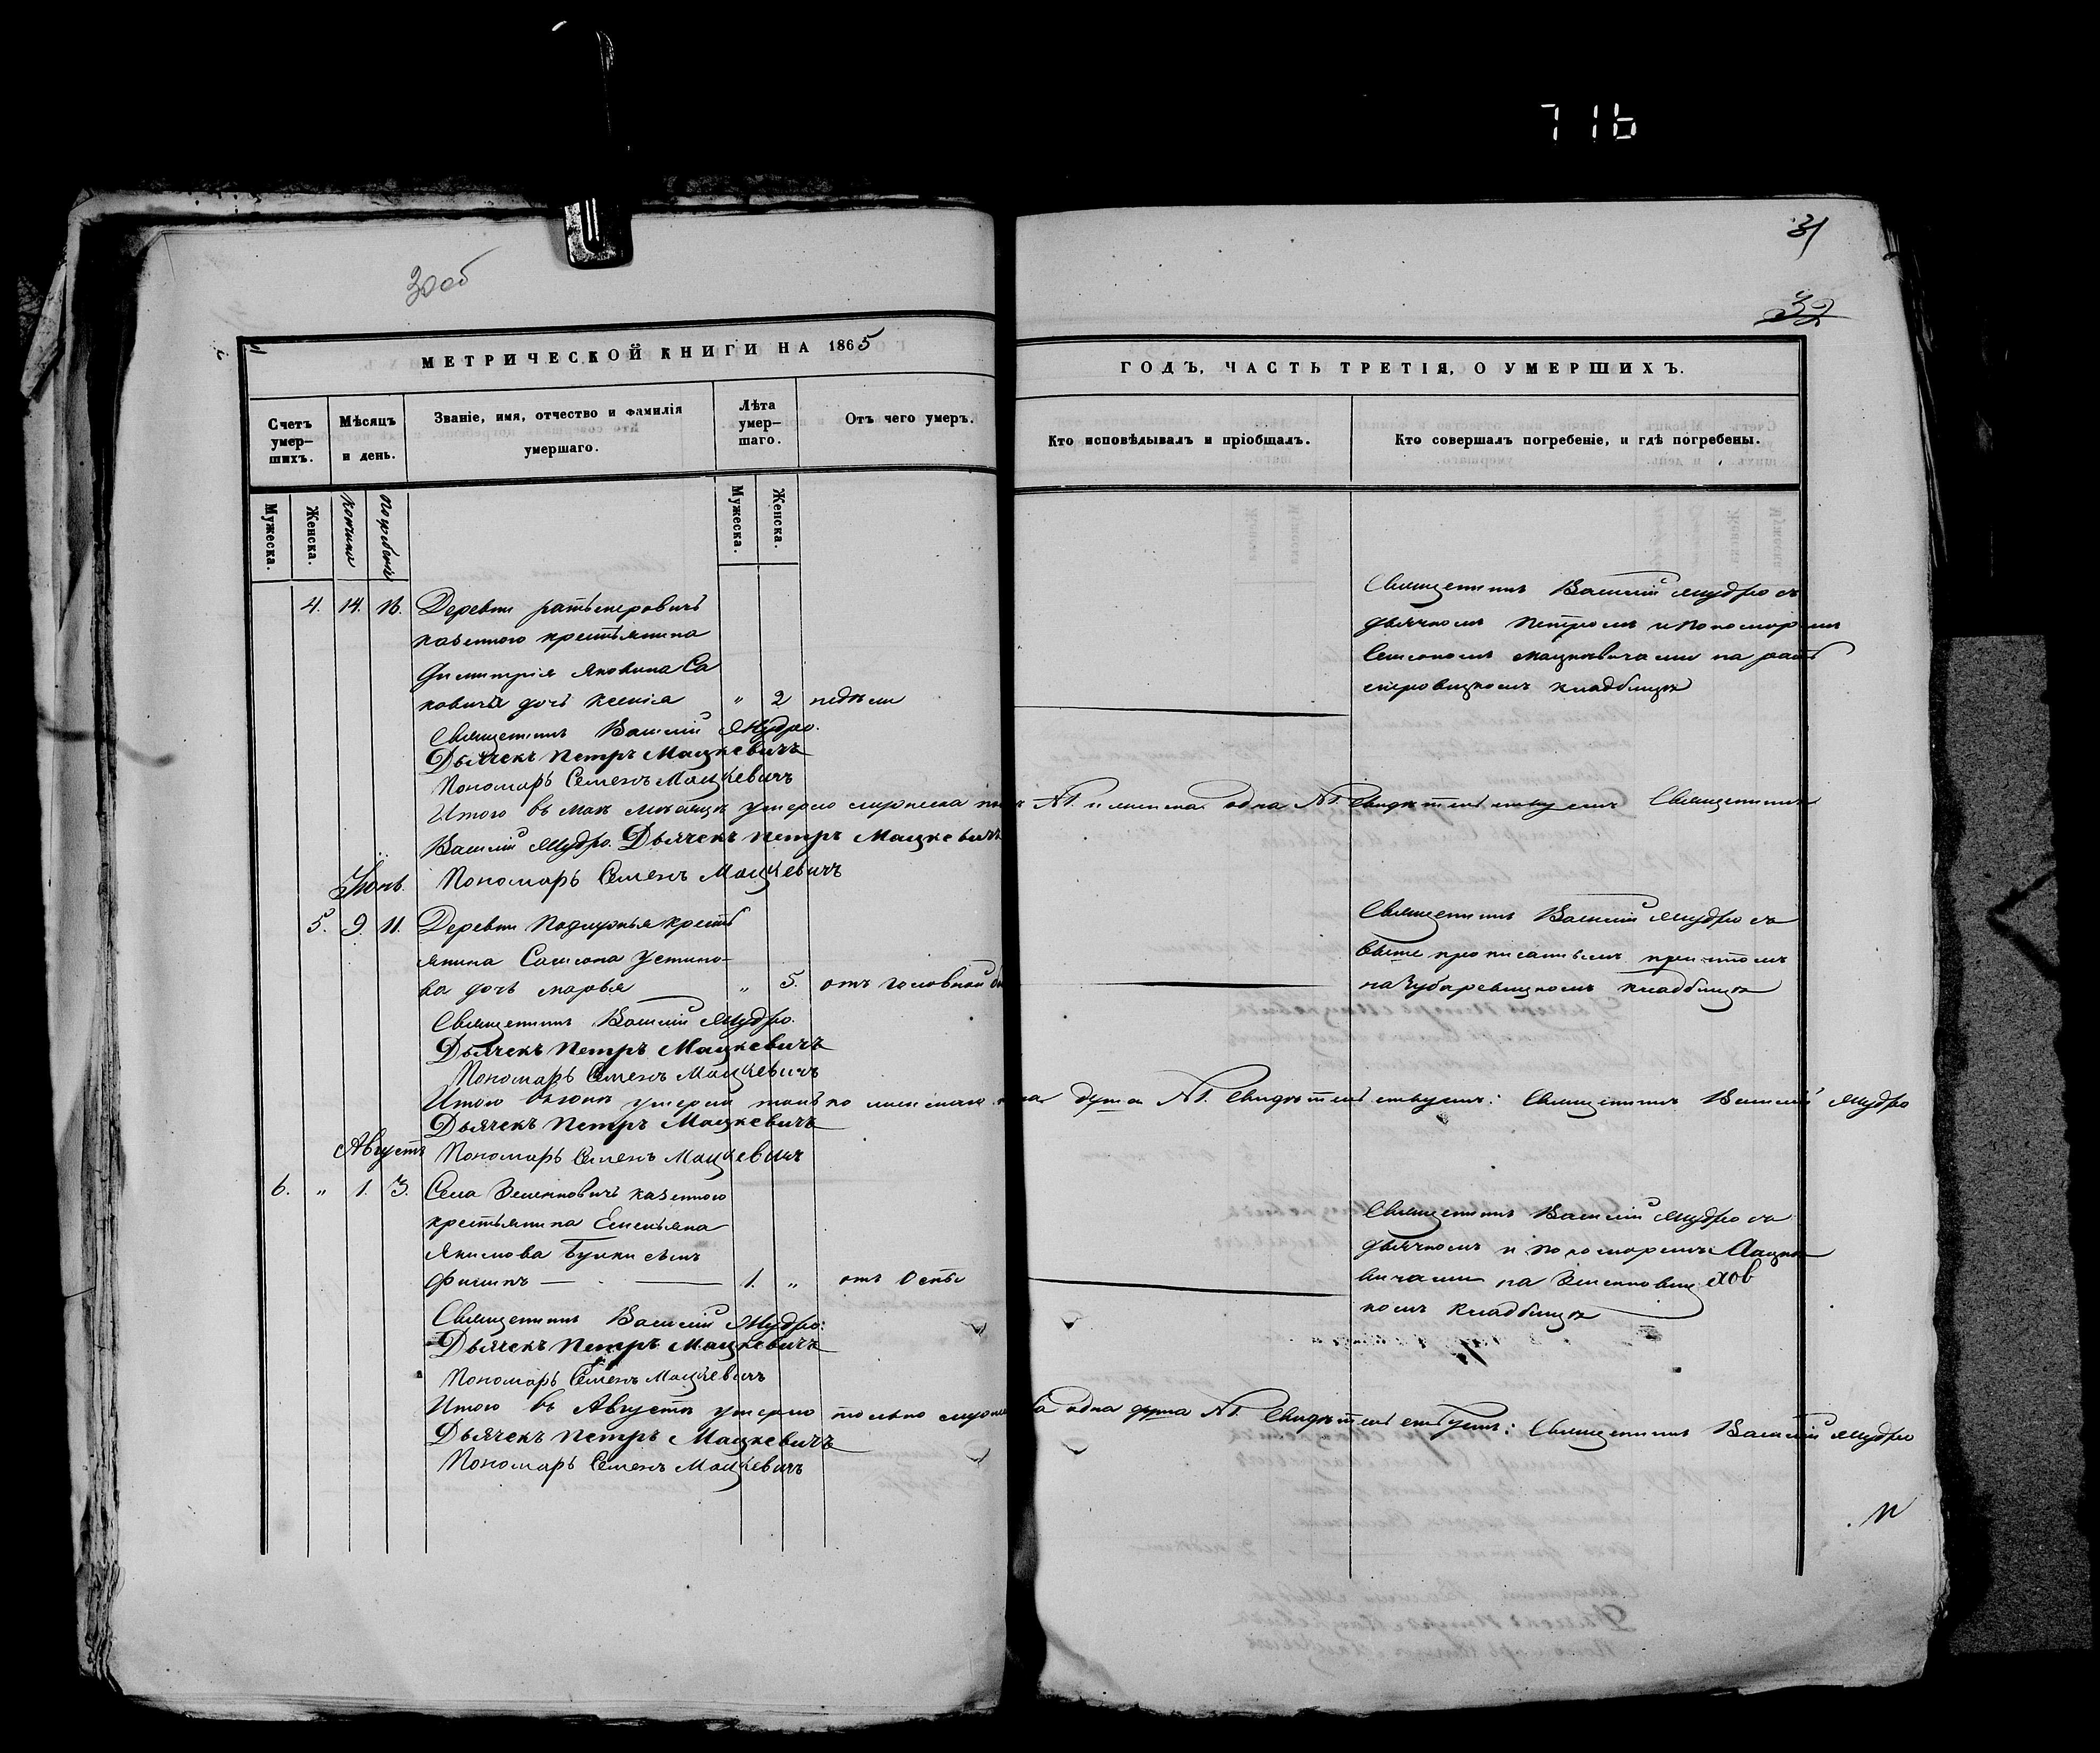 716
31
32
30об
МЕТРИЧЕСКОЙ КНИГИ НА 1865
ГОДЪ, ЧАСТЬ ТРЕТІЯ, О УМЕРШИХЪ.
Счетъ умер–шихъ.
Мѣсяцъ и день.
Званіе, имя, отчество и фамилія умершаго.
Лѣта умер–шаго.
Отъ чего умеръ.
Кто исповѣдывалъ и пріобщалъ.
Кто совершалъ погребеніе, и гдѣ погребены.
Мужеска.
Женска.
Кончины
Погребенія
Мужеска.
Женска.
4. 14. 16. Деревни
казеннаго крестьянина
Димитрія Яковина Са
ковича дочь Ксенія " 2 недѣли
Священникъ Василій Мудро съ
дьячкомъ Петромъ и Пономаремъ
Семеномъ Мацкевичами на
кладбищѣ
Священникъ Василій Мудро.
Дьячекъ Петръ Мацкевичъ
Пономарь Семенъ Мацкевичъ
Итого въ Маѣ мѣсяцѣ умерло мужеска
№1. и женска одна №1. Свидѣтельствуемъ Священникъ
Василій Мудро. Дьячекъ Петръ Мацкевичъ
Іюнь. Пономарь Семенъ Мацкевичъ
5. 9. 11. Деревни кресть
янина Самсона Устино–
ва дочь Марья " 5. отъ головной
Священникъ Василій Мудро съ
выше прописаннымъ причтомъ
на кладбищѣ
Священникъ Василій Мудро.
Дьячекъ Петръ Мацкевичъ
Пономарь Семенъ Мацкевичъ
Итого въ Іюнѣ умерла только женскаго
душа №1. Свидѣтельствуемъ: Священникъ Василій Мудро
Дьячекъ Петръ Мацкевичъ
Августъ Пономарь Семенъ Мацкевичъ
6. " 1. 3. Села Зеленковичъ казеннаго
крестьянина Емельяна
Якимова Булки сынъ
Филипъ — 1. " отъ Оспы
Священникъ Василій Мудро съ
дьячкомъ и пономаремъ Мацке
вичами на Зеленковиц
комъ кладбищѣ
Священникъ Василій Мудро:
Дьячекъ Петръ Мацкевичъ
Пономарь Семенъ Мацкевичъ
Итого въ Августѣ умерло только
одна душа №1. Свидѣтельствуемъ: Священникъ Василій Мудро
Дьячекъ Петръ Мацкевичъ
Пономарь Семенъ Мацкевичъ